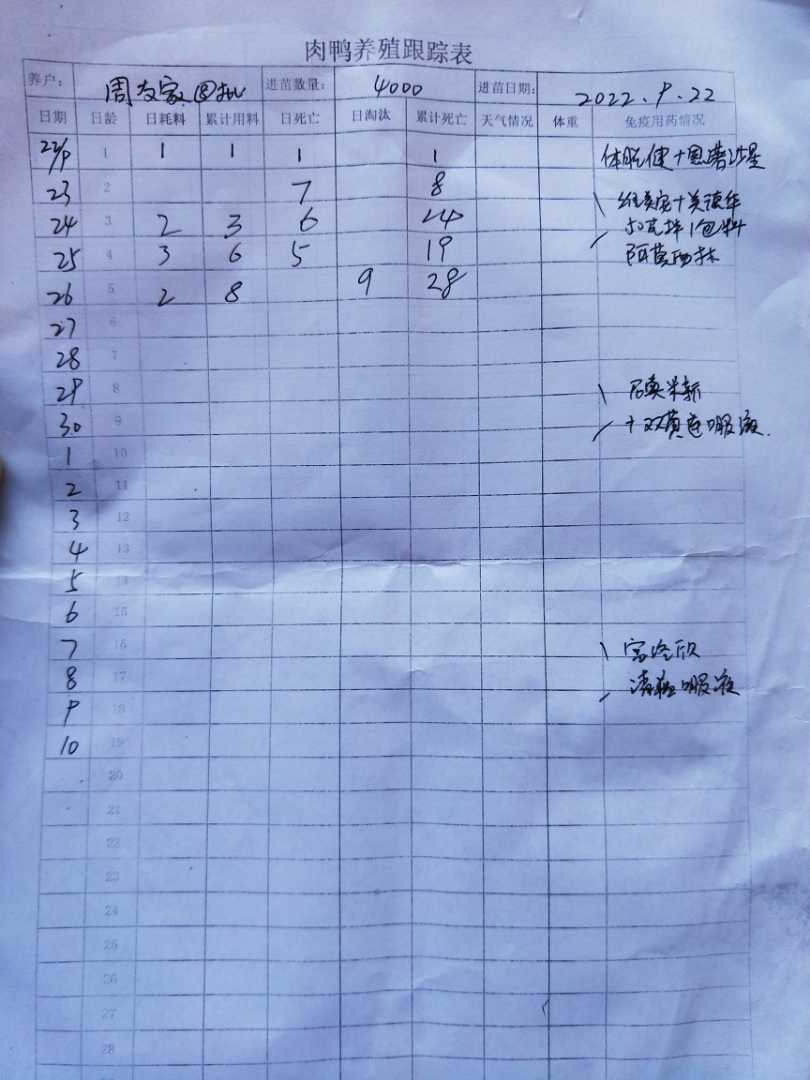 肉鸭养殖跟踪表
养户： 周友家 ⑧批 进苗数量： 4000 进苗日期： 2022.9.22
日期 日龄 日耗料 累计用料 日死亡 日淘汰 累计死亡 天气情况 体重 免疫用药情况
22/9 1 1 1 1 1
23 2 7 8
24 3 2 3 6 14
25 4 3 6 5 19
26 5 2 8 9 28
27 6
28 7
29 8
30 9 +双黄连口服液.
1 10
2 11
3 12
4 13
5 14
6 15
7 16
8 17 口服液
9 18
10 19
20
21
22
23
24
25
26
27
28